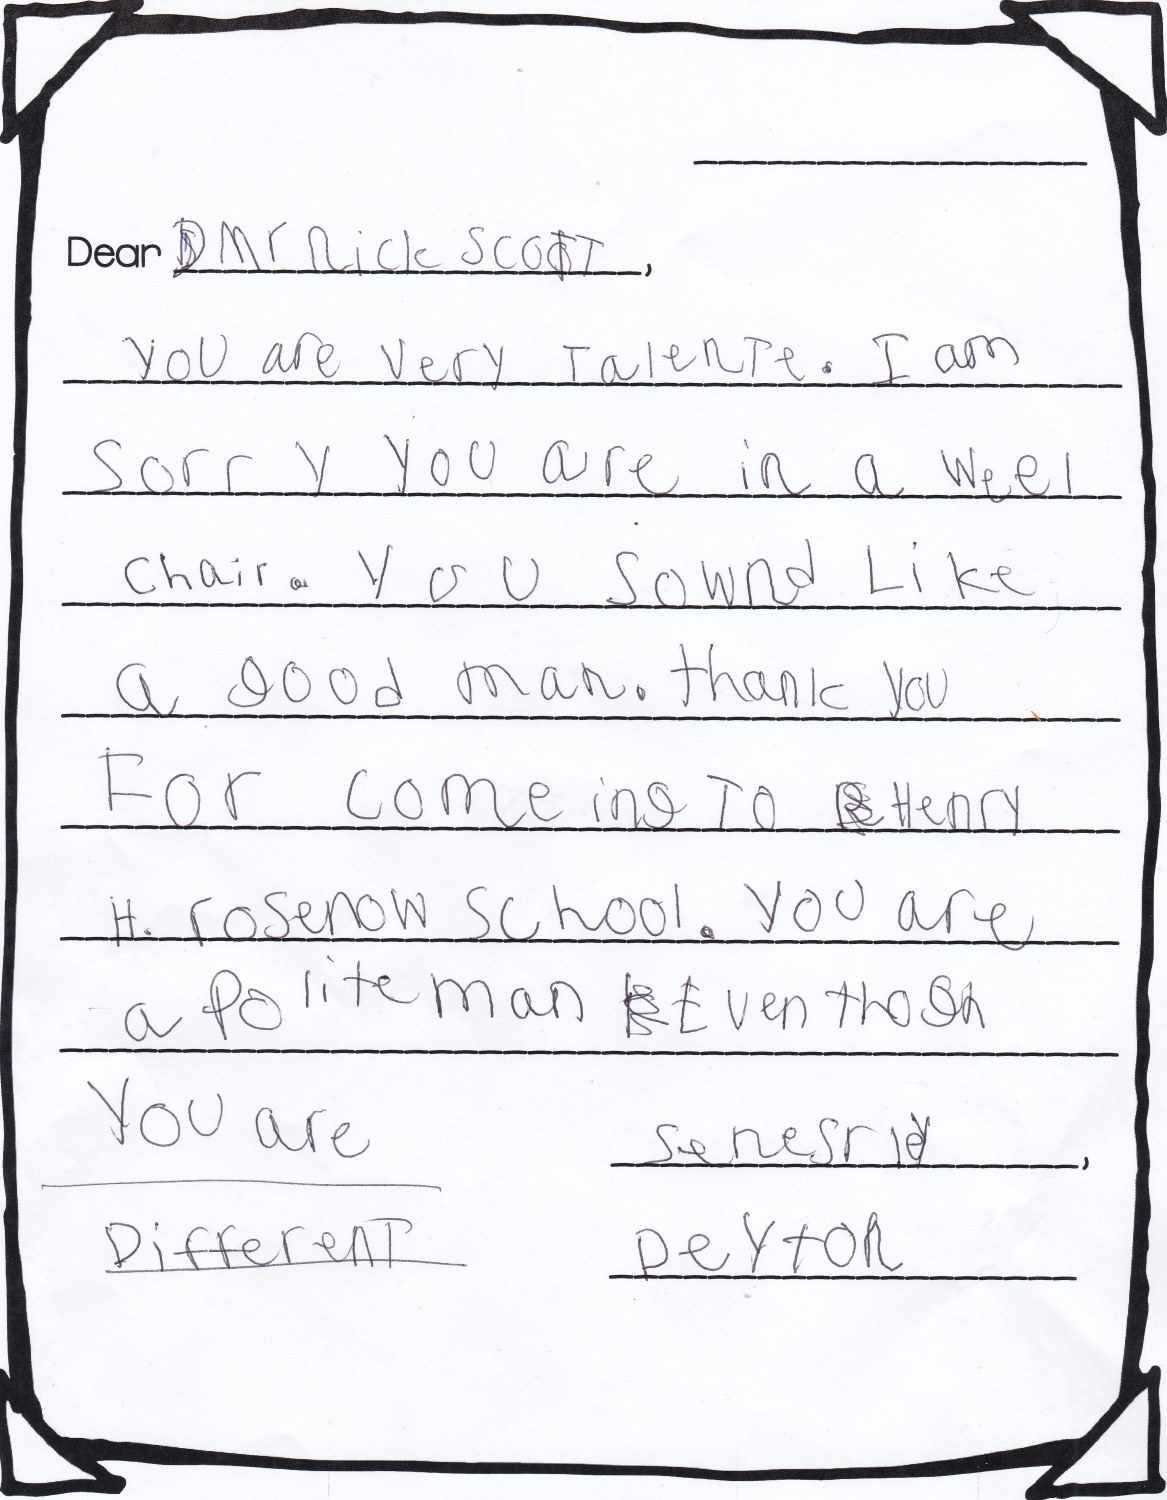 Dear Mr Nick Scott,
you are very Talente. I am
Sorry you are in a weel
chair. you Sownd Like
a good man. thank you
For comeing To Henry
H. rosenow School. you are
a Polite man Eventhogh
you are
Different
senesrly,
peyton